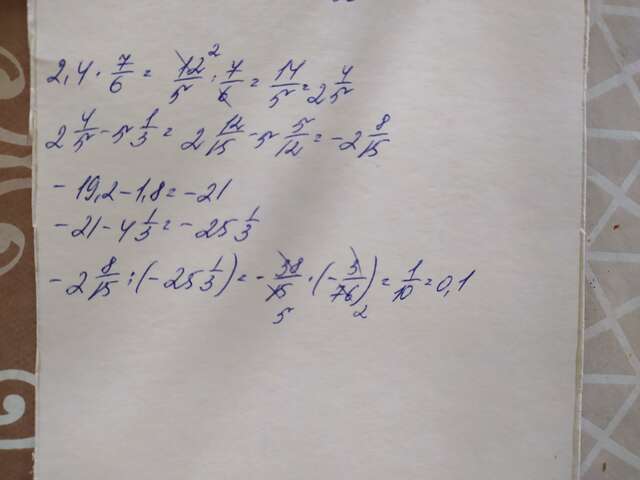 2,4 · 7/6 = 12/5 · 7/6 = 14/5 = 2 4/5
2 4/5 - 5 1/3 = 2 12/15 - 5 5/12 = - 2 8/15
- 19,2 - 1,8 = - 21
- 21 - 4 1/3 = - 25 1/3
- 2 8/15 : (- 25 1/3) = - 38/15 · (- 3/76) = 1/10 = 0,1